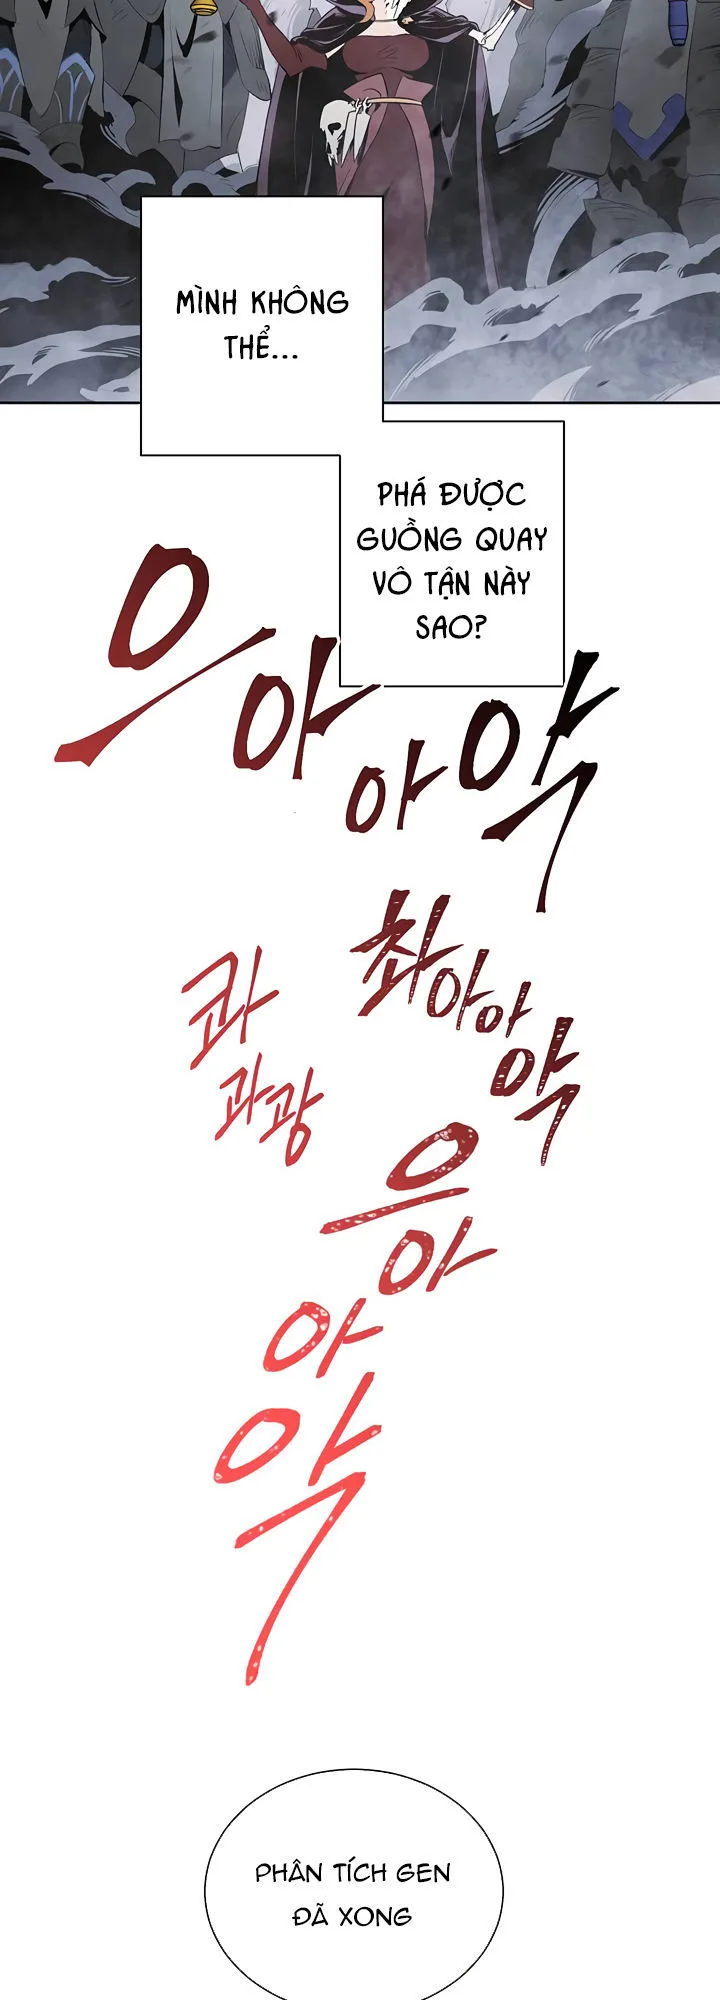 MÌNH KHÔNG
THỂ...
PHÁ ĐƯỢC
GUỒNG QUAY
VÔ TẬN NÀY
SAO?
으아아악
촤아아악
콰
콰광
으아아악
PHÂN TÍCH GEN
ĐÃ XONG